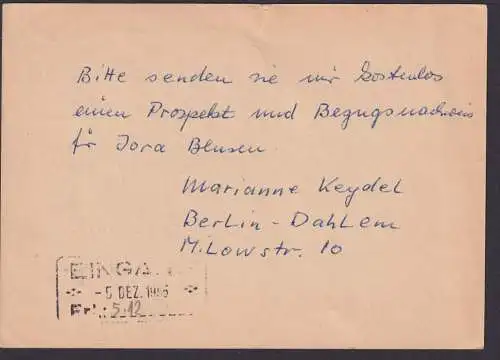 Bitte senden sie mir kostenlos
einen Prospekt und Bezugsnachweis
für Jora Blusen.
Marianne Keydel
Berlin-Dahlem
M. Lowstr. 10
EINGA
- 5. DEZ. 195
Erl.: 5.12